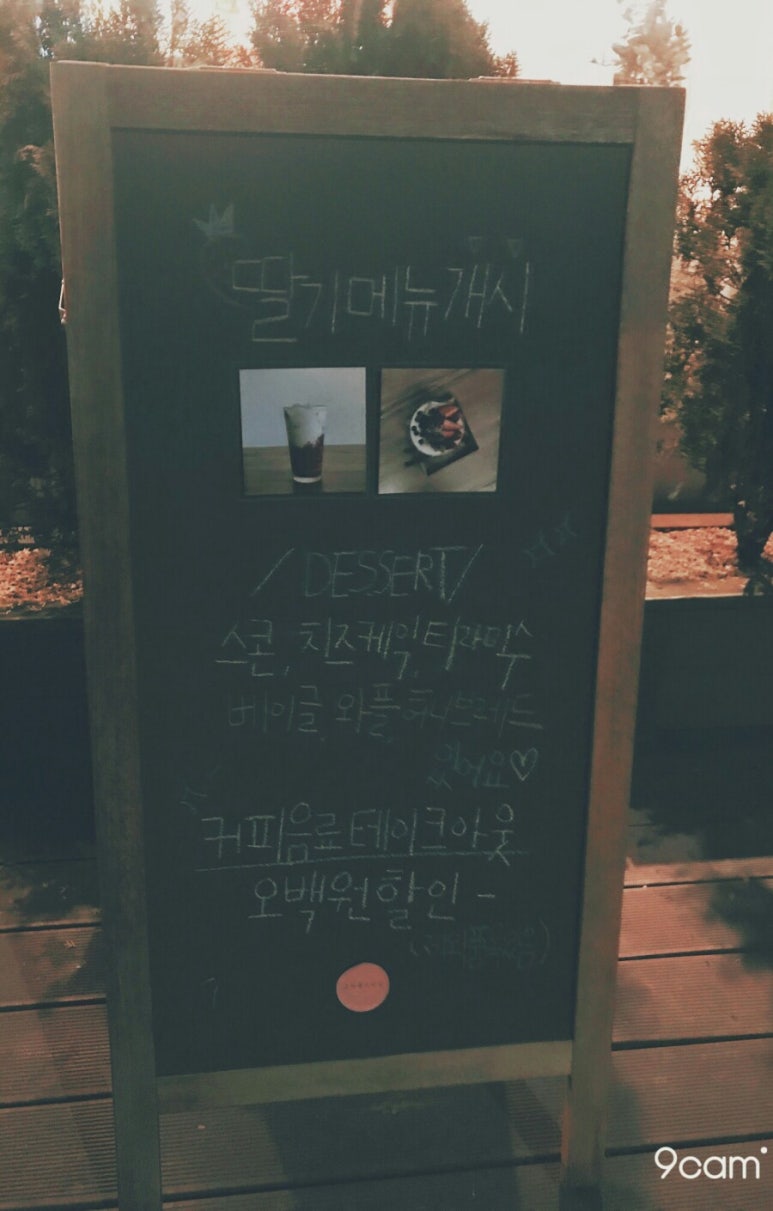 딸기메뉴개시
/DESSERT/
스콘, 치즈케익, 티라미수
베이글, 와플, 허니브레드
있어요♡
커피음료테이크아웃
오백원할인 -
9cam